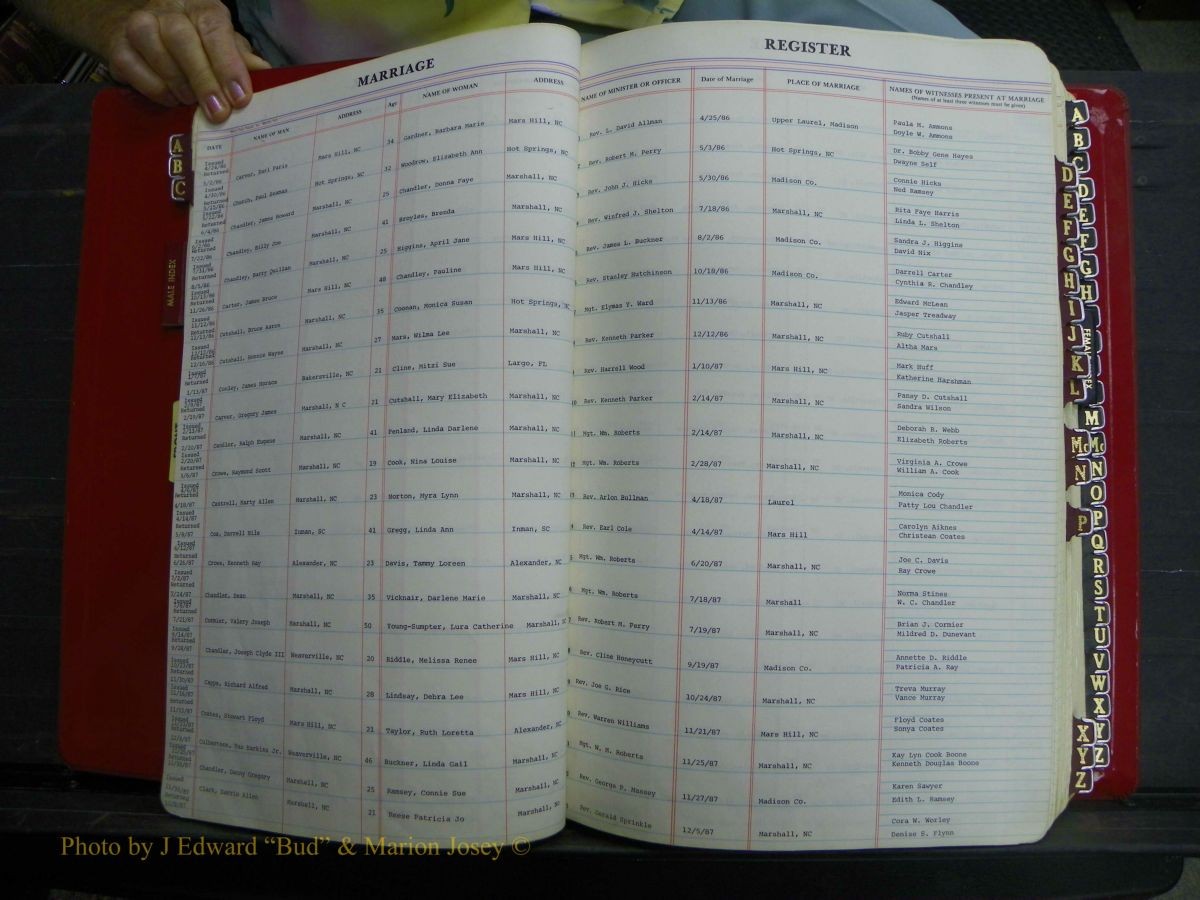 MARRIAGE
REGISTER
DATE NAME OF MAN ADDRESS Age NAME OF WOMAN ADDRESS NAME OF MINISTER OR OFFICER Date of Marriage PLACE OF MARRIAGE NAMES OF WITNESSES PRESENT AT MARRIAGE
(Names of at least three witnesses must be given)
Carver, Earl Paris Mars Hill, NC 34 Gardner, Barbara Marie Mars Hill, NC Rev. L. David Allman 4/25/86 Upper Laurel, Madison Paula M. Ammons
Doyle W. Ammons
Church, Paul Seaman Hot Springs, NC 32 Woodrow, Elizabeth Ann Hot Springs, NC Rev. Robert M. Perry 5/3/86 Hot Springs, NC Dr. Bobby Gene Hayes
Dwayne Self
Chandler, James Howard Marshall, NC 25 Chandler, Donna Faye Marshall, NC Rev. John J. Hicks 5/30/86 Madison Co. Connie Hicks
Ned Ramsey
Chandley, Billy Joe Marshall, NC 41 Broyles, Brenda Marshall, NC Rev. Winfred J. Shelton 7/18/86 Marshall, NC Rita Faye Harris
Linda L. Shelton
Chandley, Barry Quillan Marshall, NC 25 Higgins, April Jane Mars Hill, NC Rev. James L. Buckner 8/2/86 Madison Co. Sandra J. Higgins
David Nix
Carter, James Bruce Mars Hill, NC 48 Chandley, Pauline Mars Hill, NC Rev. Stanley Hutchinson 10/18/86 Madison Co. Darrell Carter
Cynthia R. Chandley
Cutshall, Bruce Aaron Marshall, NC 35 Coonan, Monica Susan Hot Springs, NC Mgt. Elymas Y. Ward 11/13/86 Marshall, NC Edward McLean
Jasper Treadway
Cutshall, Ronnie Wayne Marshall, NC 27 Mars, Wilma Lee Marshall, NC Rev. Kenneth Parker 12/12/86 Marshall, NC Ruby Cutshall
Altha Mars
Conley, James Horace Bakersville, NC 21 Cline, Mitzi Sue Largo, FL Rev. Harrell Wood 1/10/87 Mars Hill, NC Mark Huff
Katherine Harshman
Carver, Gregory James Marshall, N C 21 Cutshall, Mary Elizabeth Marshall, NC Rev. Kenneth Parker 2/14/87 Marshall, NC Pansy D. Cutshall
Sandra Wilson
Candler, Ralph Eugene Marshall, NC 41 Penland, Linda Darlene Marshall, NC Mgt. Wm. Roberts 2/14/87 Marshall, NC Deborah R. Webb
Elizabeth Roberts
Crowe, Raymond Scott Marshall, NC 19 Cook, Nina Louise Marshall, NC Mgt. Wm. Roberts 2/28/87 Marshall, NC Virginia A. Crowe
William A. Cook
Cantrell, Harty Allen Marshall, NC 23 Norton, Myra Lynn Marshall, NC Rev. Arlon Bullman 4/18/87 Laurel Monica Cody
Patty Lou Chandler
Cox, Darrell Nile Inman, SC 41 Gregg, Linda Ann Inman, SC Rev. Earl Cole 4/14/87 Mars Hill Carolyn Aiknes
Christean Coates
Crowe, Kenneth Ray Alexander, NC 23 Davis, Tammy Loreen Alexander, NC Mgt. Wm. Roberts 6/20/87 Marshall, NC Joe C. Davis
Ray Crowe
Chandler, Dean Marshall, NC 35 Vicknair, Darlene Marie Marshall, NC Mgt. Wm. Roberts 7/18/87 Marshall Norma Stines
W. C. Chandler
Cormier, Valery Joseph Marshall, NC 50 Young-Sumpter, Lura Catherine Marshall, NC Rev. Robert M. Perry 7/19/87 Marshall, NC Brian J. Cormier
Mildred D. Dunevant
Chandler, Joseph Clyde III Weaverville, NC 20 Riddle, Melissa Renee Mars Hill, NC Rev. Cline Honeycutt 9/19/87 Madison Co. Annette D. Riddle
Patricia A. Ray
Capps, Richard Alfred Marshall, NC 28 Lindsay, Debra Lee Mars Hill, NC Rev. Joe G. Rice 10/24/87 Marshall, NC Treva Murray
Vance Murray
Coates, Stewart Floyd Mars Hill, NC 21 Taylor, Ruth Loretta Alexander, NC Rev. Warren Williams 11/21/87 Mars Hill, NC Floyd Coates
Sonya Coates
Harkins Jr. Weaverville, NC 46 Buckner, Linda Gail Marshall, NC Mgt. W. M. Roberts 11/25/87 Marshall, NC Kay Lyn Cook Boone
Kenneth Douglas Boone
Chandler, Danny Gregory Marshall, NC 25 Ramsey, Connie Sue Marshall, NC Rev. George P. Massey 11/27/87 Madison Co. Karen Sawyer
Edith L. Ramsey
Clark, Allen Marshall, NC 21 Reese Patricia Jo Marshall, NC Rev. Gerald Sprinkle 12/5/87 Marshall, NC Cora W. Worley
Denise S. Flynn
A
B
C
MALE INDEX
A
B
C
D
E
F
G
H
I
J
K
L
M
Mc
N
O
P
Q
R
S
T
U
V
W
X
Y
Z
D
E
F
G
H
I
J
K
L
Mc
N
P
XYZ
Photo by J Edward “Bud” & Marion Josey ©